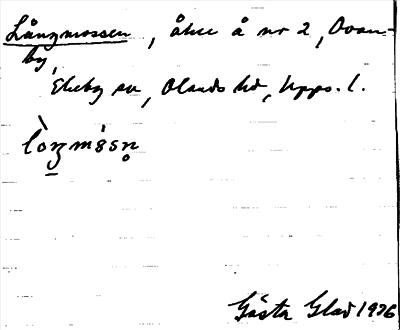 Långmossen, åker å nr 2, Ovan-
by,
Ekeby sn, Olands hd, Upps. l.
lòŋmósn̥
Gösta Glad 1976